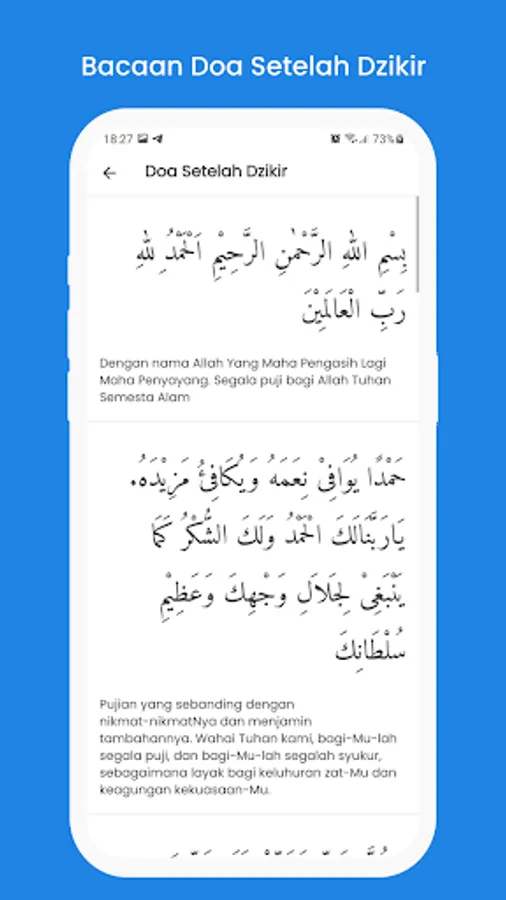 Bacaan Doa Setelah Dzikir
18:27
73%
Doa Setelah Dzikir
بِسْمِ اللهِ الرَّحْمٰنِ الرَّحِيْمِ اَلْحَمْدُ لِلهِ
رَبِّ الْعَالَمِيْنَ
Dengan nama Allah Yang Maha Pengasih Lagi
Maha Penyayang. Segala puji bagi Allah Tuhan
Semesta Alam
حَمْدًا يُوَافِيْ نِعَمَهُ وَيُكَافِئُ مَزِيْدَهُ.
يَارَبَّنَالَكَ الْحَمْدُ وَلَكَ الشُّكْرُ كَمَا
يَنْبَغِيْ لِجَلَالِ وَجْهِكَ وَعَظِيْمِ
سُلْطَانِكَ
Pujian yang sebanding dengan
nikmat-nikmatNya dan menjamin
tambahannya. Wahai Tuhan kami, bagi-Mu-lah
segala puji, dan bagi-Mu-lah segalah syukur,
sebagaimana layak bagi keluhuran zat-Mu dan
keagungan kekuasaan-Mu.